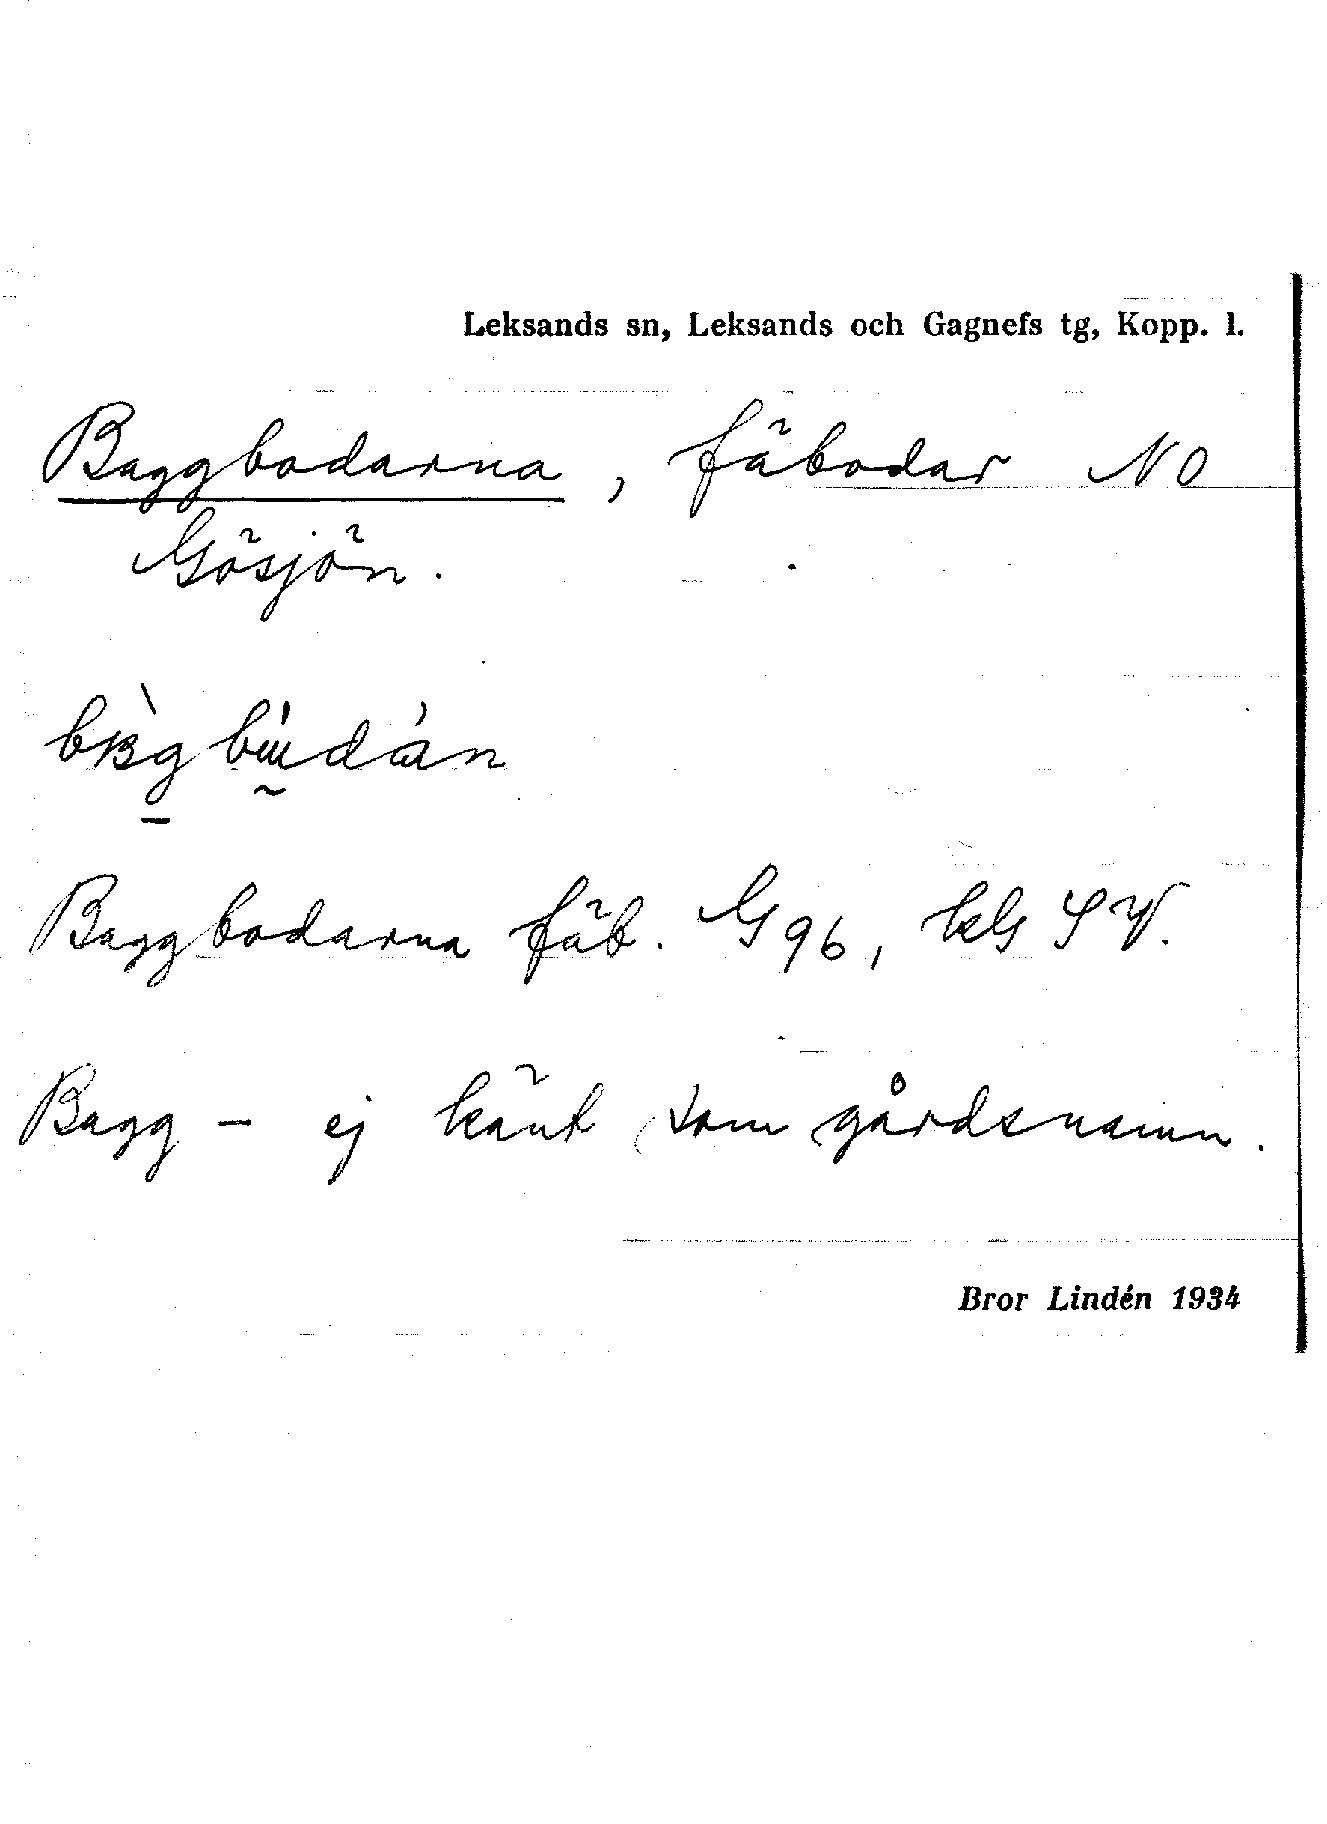 Leksands sn, Leksands och Gagnefs tg, Kopp. l.
Baggbodarna, fäbodar NO
Gösjön.
Baggbodarna fäb. G 96, kbl SV.
Bagg – ej känt som gårdsnamn.
Bror Lindén 1934